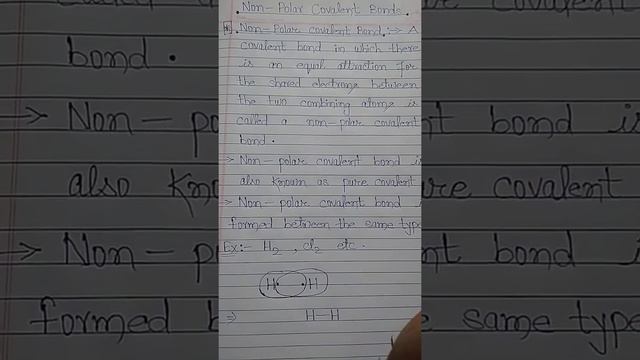 Non-Polar Covalent Bonds.
Non-Polar covalent Bond :-> A
covalent bond in which there
is an equal attraction for
the shared electrons between
the two combining atoms is
called a non-polar covalent
bond.
-> Non-polar covalent bond is
also known as pure covalent
-> Non-polar covalent bond
formed between the same type
Ex:- H2, cl2 etc.
H H
=> H-H
bond.
-> Non-po
also Kno
-> Non-p
formed b
nt bond is
ure covalent
nt bond
same type